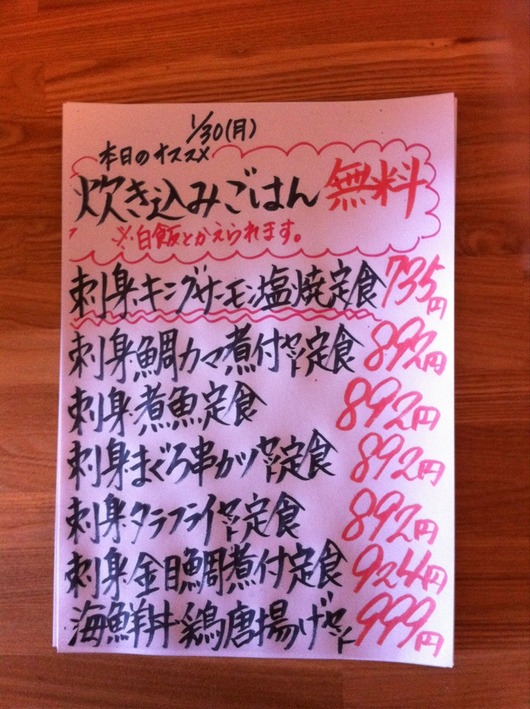 1/30(月)
本日のオススメ
炊き込みごはん 無料
※白飯とかえられます。
刺身・キングサーモン塩焼定食 735円
刺身・鯛カマ煮付セット定食 892円
刺身・煮魚定食 892円
刺身・まぐろ串かつセット定食 892円
刺身・タラフライセット定食 892円
刺身・金目鯛煮付定食 924円
海鮮丼・鶏唐揚げセット 999円